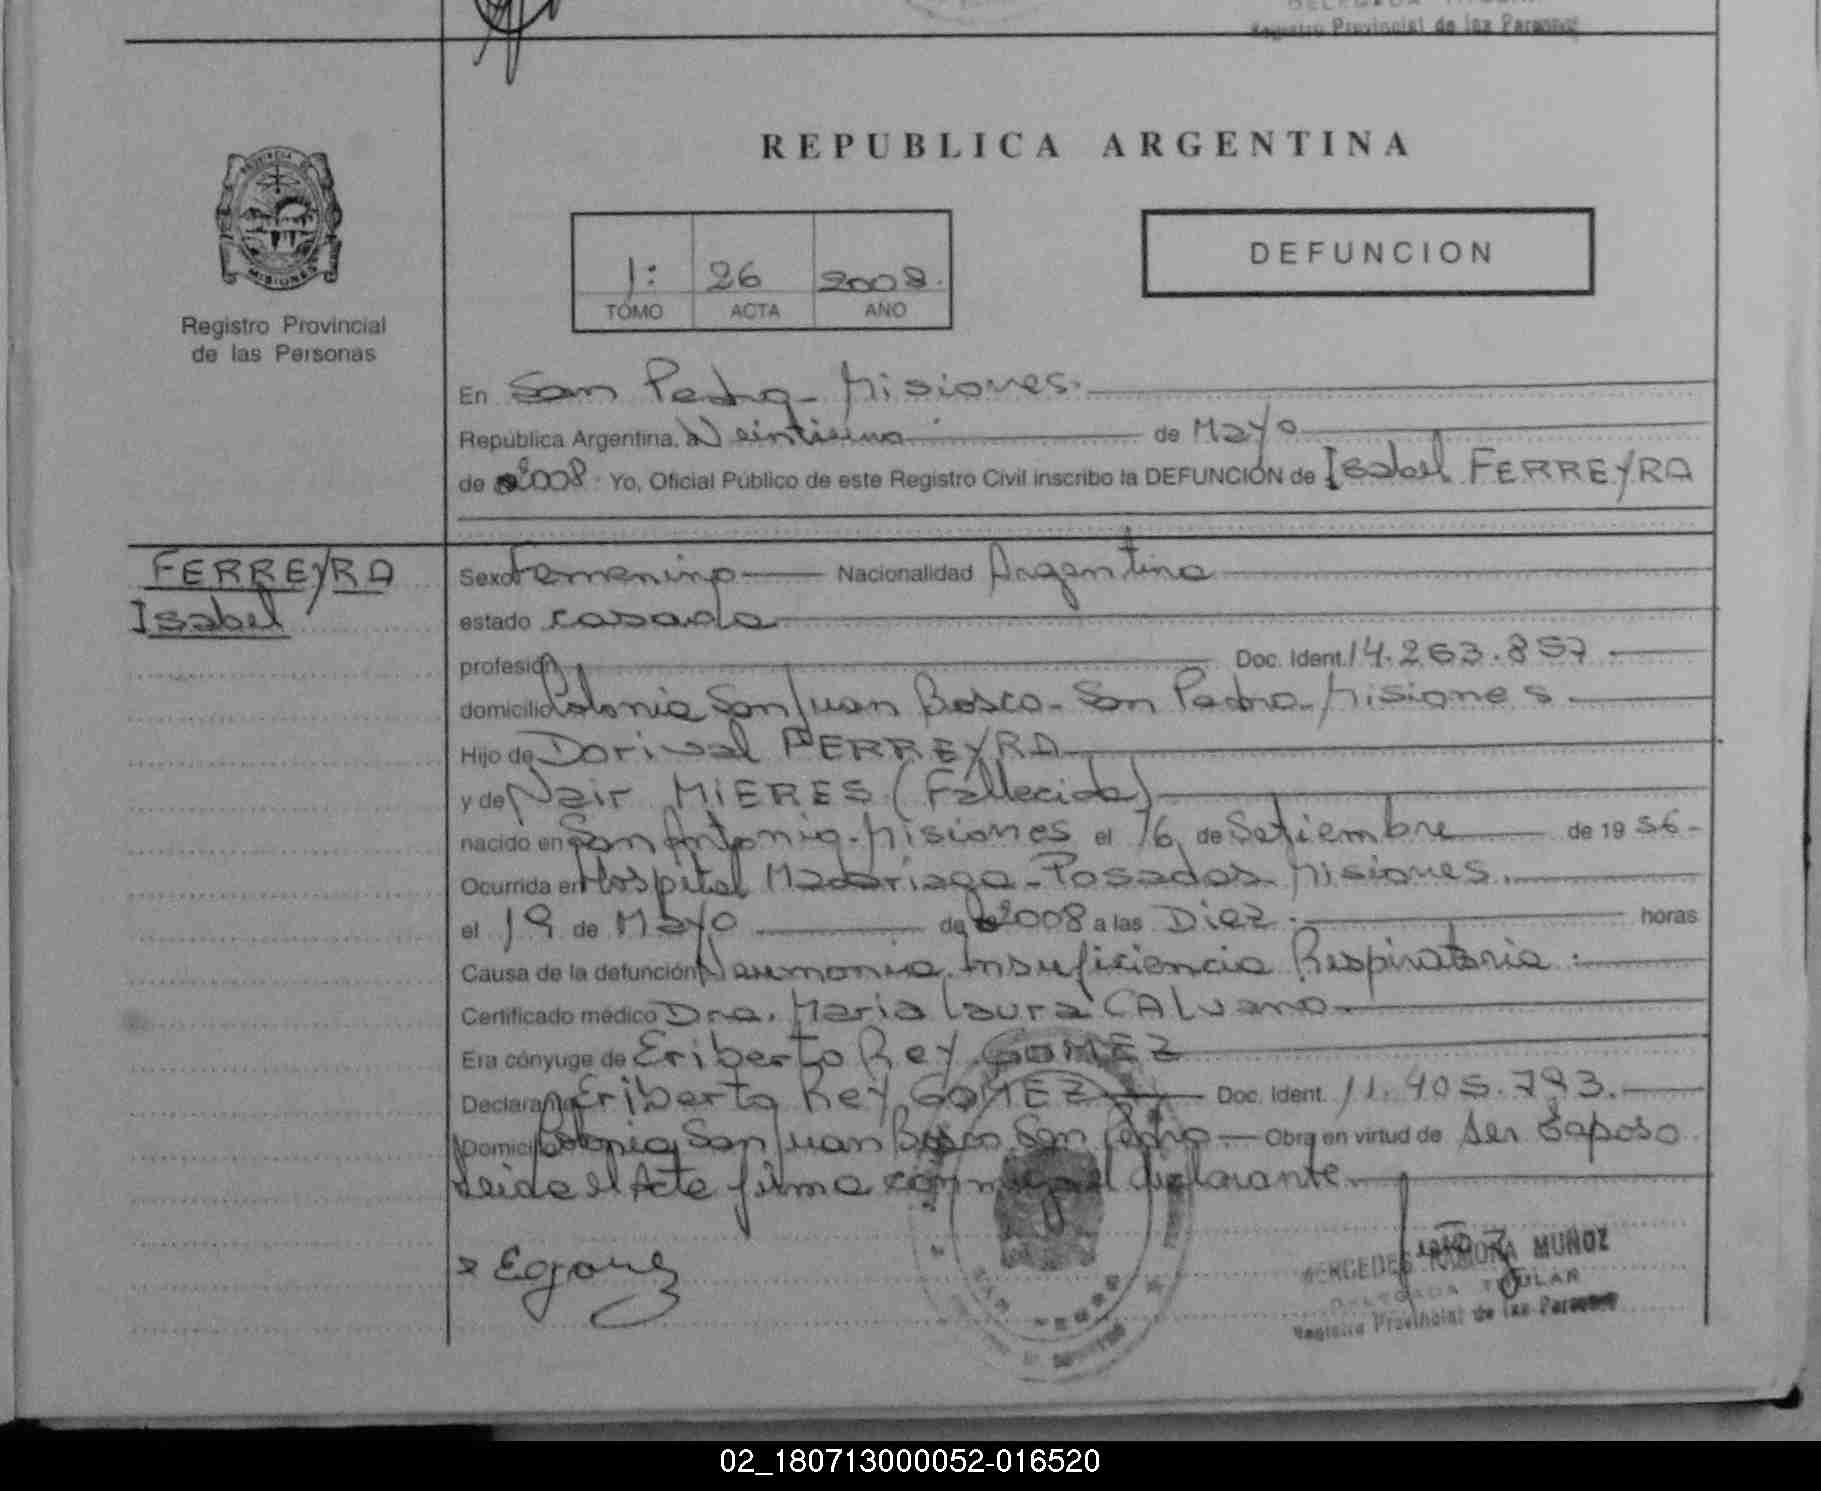 Registro Provincial de las Personas
REPUBLICA ARGENTINA
PROVINCIA DE
MISIONES
Registro Provincial
de las Personas
1: 26 2008.
TOMO ACTA AÑO
DEFUNCION
En San Pedro - Misiones.
República Argentina, a Veintiuno de Mayo
de 2008. Yo, Oficial Público de este Registro Civil inscribo la DEFUNCIÓN de Isabel FERREYRA
FERREYRA
Isabel
Sexo Femenino Nacionalidad Argentina
estado casada
profesión Doc. Ident. 14.263.857.
domicilio Colonia San Juan Bosco - San Pedro - Misiones
Hijo de Dorival FERREYRA
y de Nair MIERES (Fallecida)
nacido en San Antonio - Misiones el 16 de Setiembre de 19 56 -
Ocurrida en Hospital Madariaga - Posadas Misiones.
el 19 de Mayo de 2008 a las Diez. horas
Causa de la defunción Neumonia. Insuficiencia Respiratoria.
Certificado médico Dra. Maria Laura CALvano
Era cónyuge de Eriberto Rey GOMEZ
Declarante Eriberto Rey GOMEZ Doc. Ident. 11.405.793.
Domicilio Colonia San Juan Bosco San Pedro Obra en virtud de ser Esposo
Leida el Acta firma conmigo el declarante.
MERCEDES RAMONA MUÑOZ
DELEGADA TITULAR
Registro Provincial de las Personas
02_180713000052-016520